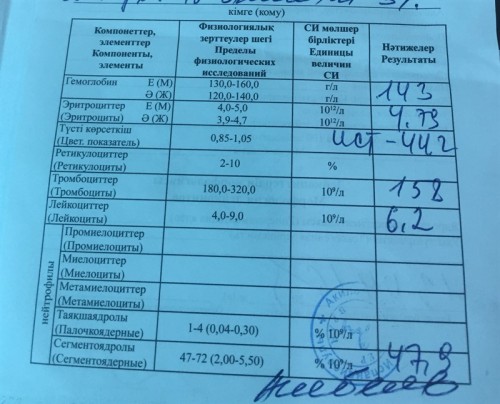 кімге (кому)
Компонеттер, элементтер Компоненты, элементы
Физиологиялық зерттеулер шегі Пределы физиологических исследований
СИ мөлшер бірліктері Единицы величин СИ
Нәтижелер Результаты
Гемоглобин Е (М) 130,0-160,0 г/л
Ә (Ж) 120,0-140,0 г/л 143
Эритроциттер Е (М) 4,0-5,0 10¹²/л
(Эритроциты) Ә (Ж) 3,9-4,7 10¹²/л 4,79
Түсті көрсеткіш
(Цвет. показатель) 0,85-1,05
Ретикулоциттер
(Ретикулоциты) 2-10 %
Тромбоциттер
(Тромбоциты) 180,0-320,0 10⁹/л 158
Лейкоциттер
(Лейкоциты) 4,0-9,0 10⁹/л 6,2
нейтрофилы
Промиелоциттер
(Промиелоциты)
Миелоциттер
(Миелоциты)
Метамиелоциттер
(Метамиелоциты)
Таяқшаядролы
(Палочкоядерные) 1-4 (0,04-0,30) % 10⁹/л
Сегментоядролы
(Сегментоядерные) 47-72 (2,00-5,50) % 10⁹/л 47,9